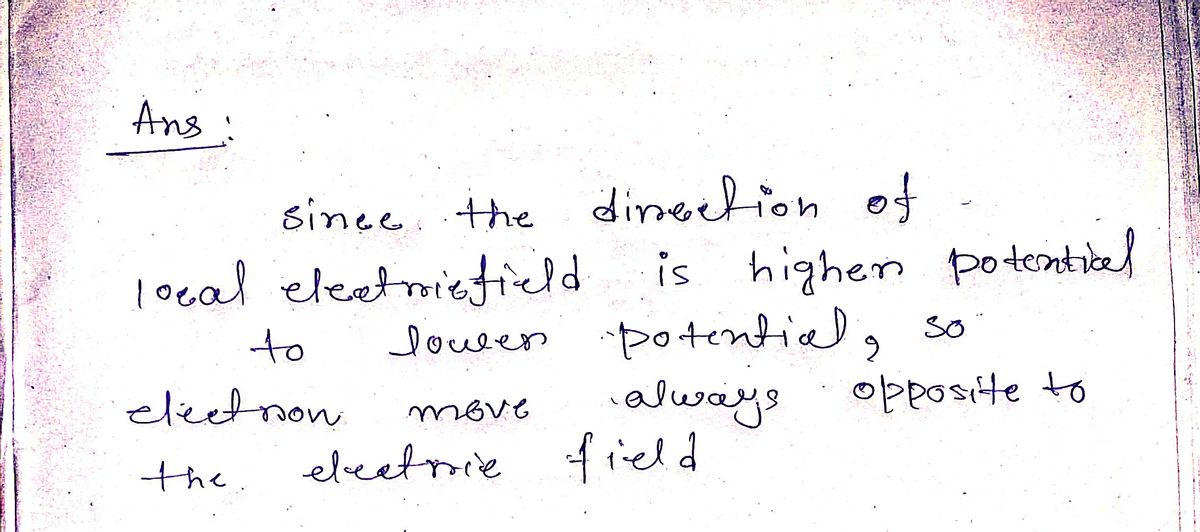 Ans :
since the direction of
local electricfield is higher potential
to lower potential, so
electron move always opposite to
the electric field